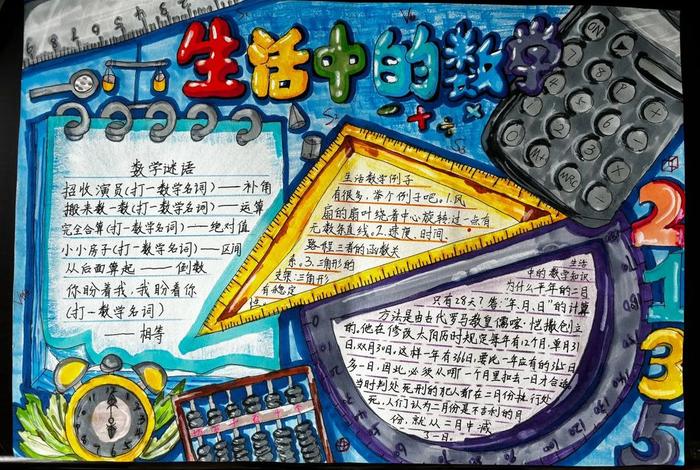 生活中的数学
数学谜语
招收演员(打一数学名词)——补角
搬来数一数(打一数学名词)——运算
完全合算(打一数学名词)——绝对值
小小房子(打一数学名词)——区间
从后面算起——倒数
你盼着我,我盼着你
(打一数学名词)
——相等
生活数学例子
有很多,举个例子吧。1.风
扇的扇叶绕着中心旋转过一点有
无数条直线。2.速度、时间、
路程三者的函数关
系。3.三角形的
支架:三角形
有稳定
性
生活
中的数学知识
为什么平年的二月
只有28天?答:"年、月、日"的计算
方法是由古代罗马教皇儒略·恺撒创立
的,他在修改太阳历时规定每年有12个月,单月31
日,双月30日,这样一年有366日,要比一年应有的365日
多一日,因此必须从哪一个月里扣去一日才合适。
当时判处死刑的犯人都在二月份执行处
死,人们认为二月份是不吉利的月
份,就从二月中减
了一日。
ON
MRC
M+
2
1
3
5